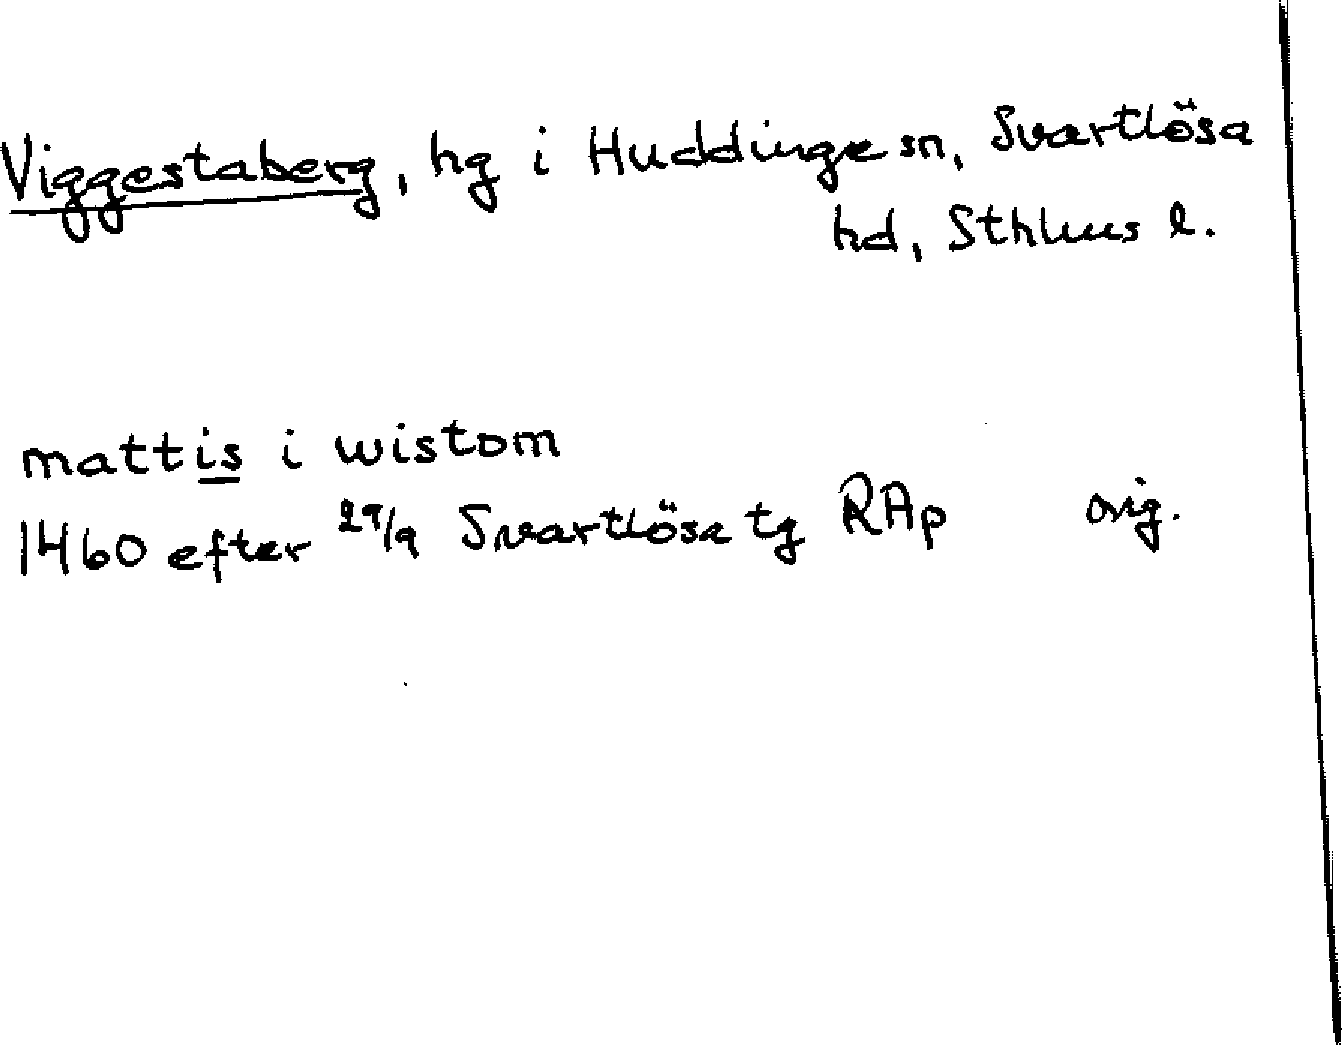 Viggestaberg, hg i Huddinge sn, Svartlösa
hd, Sthlms l.
mattis i wistom
1460 efter 29/9 Svartlösa tg RAp orig.